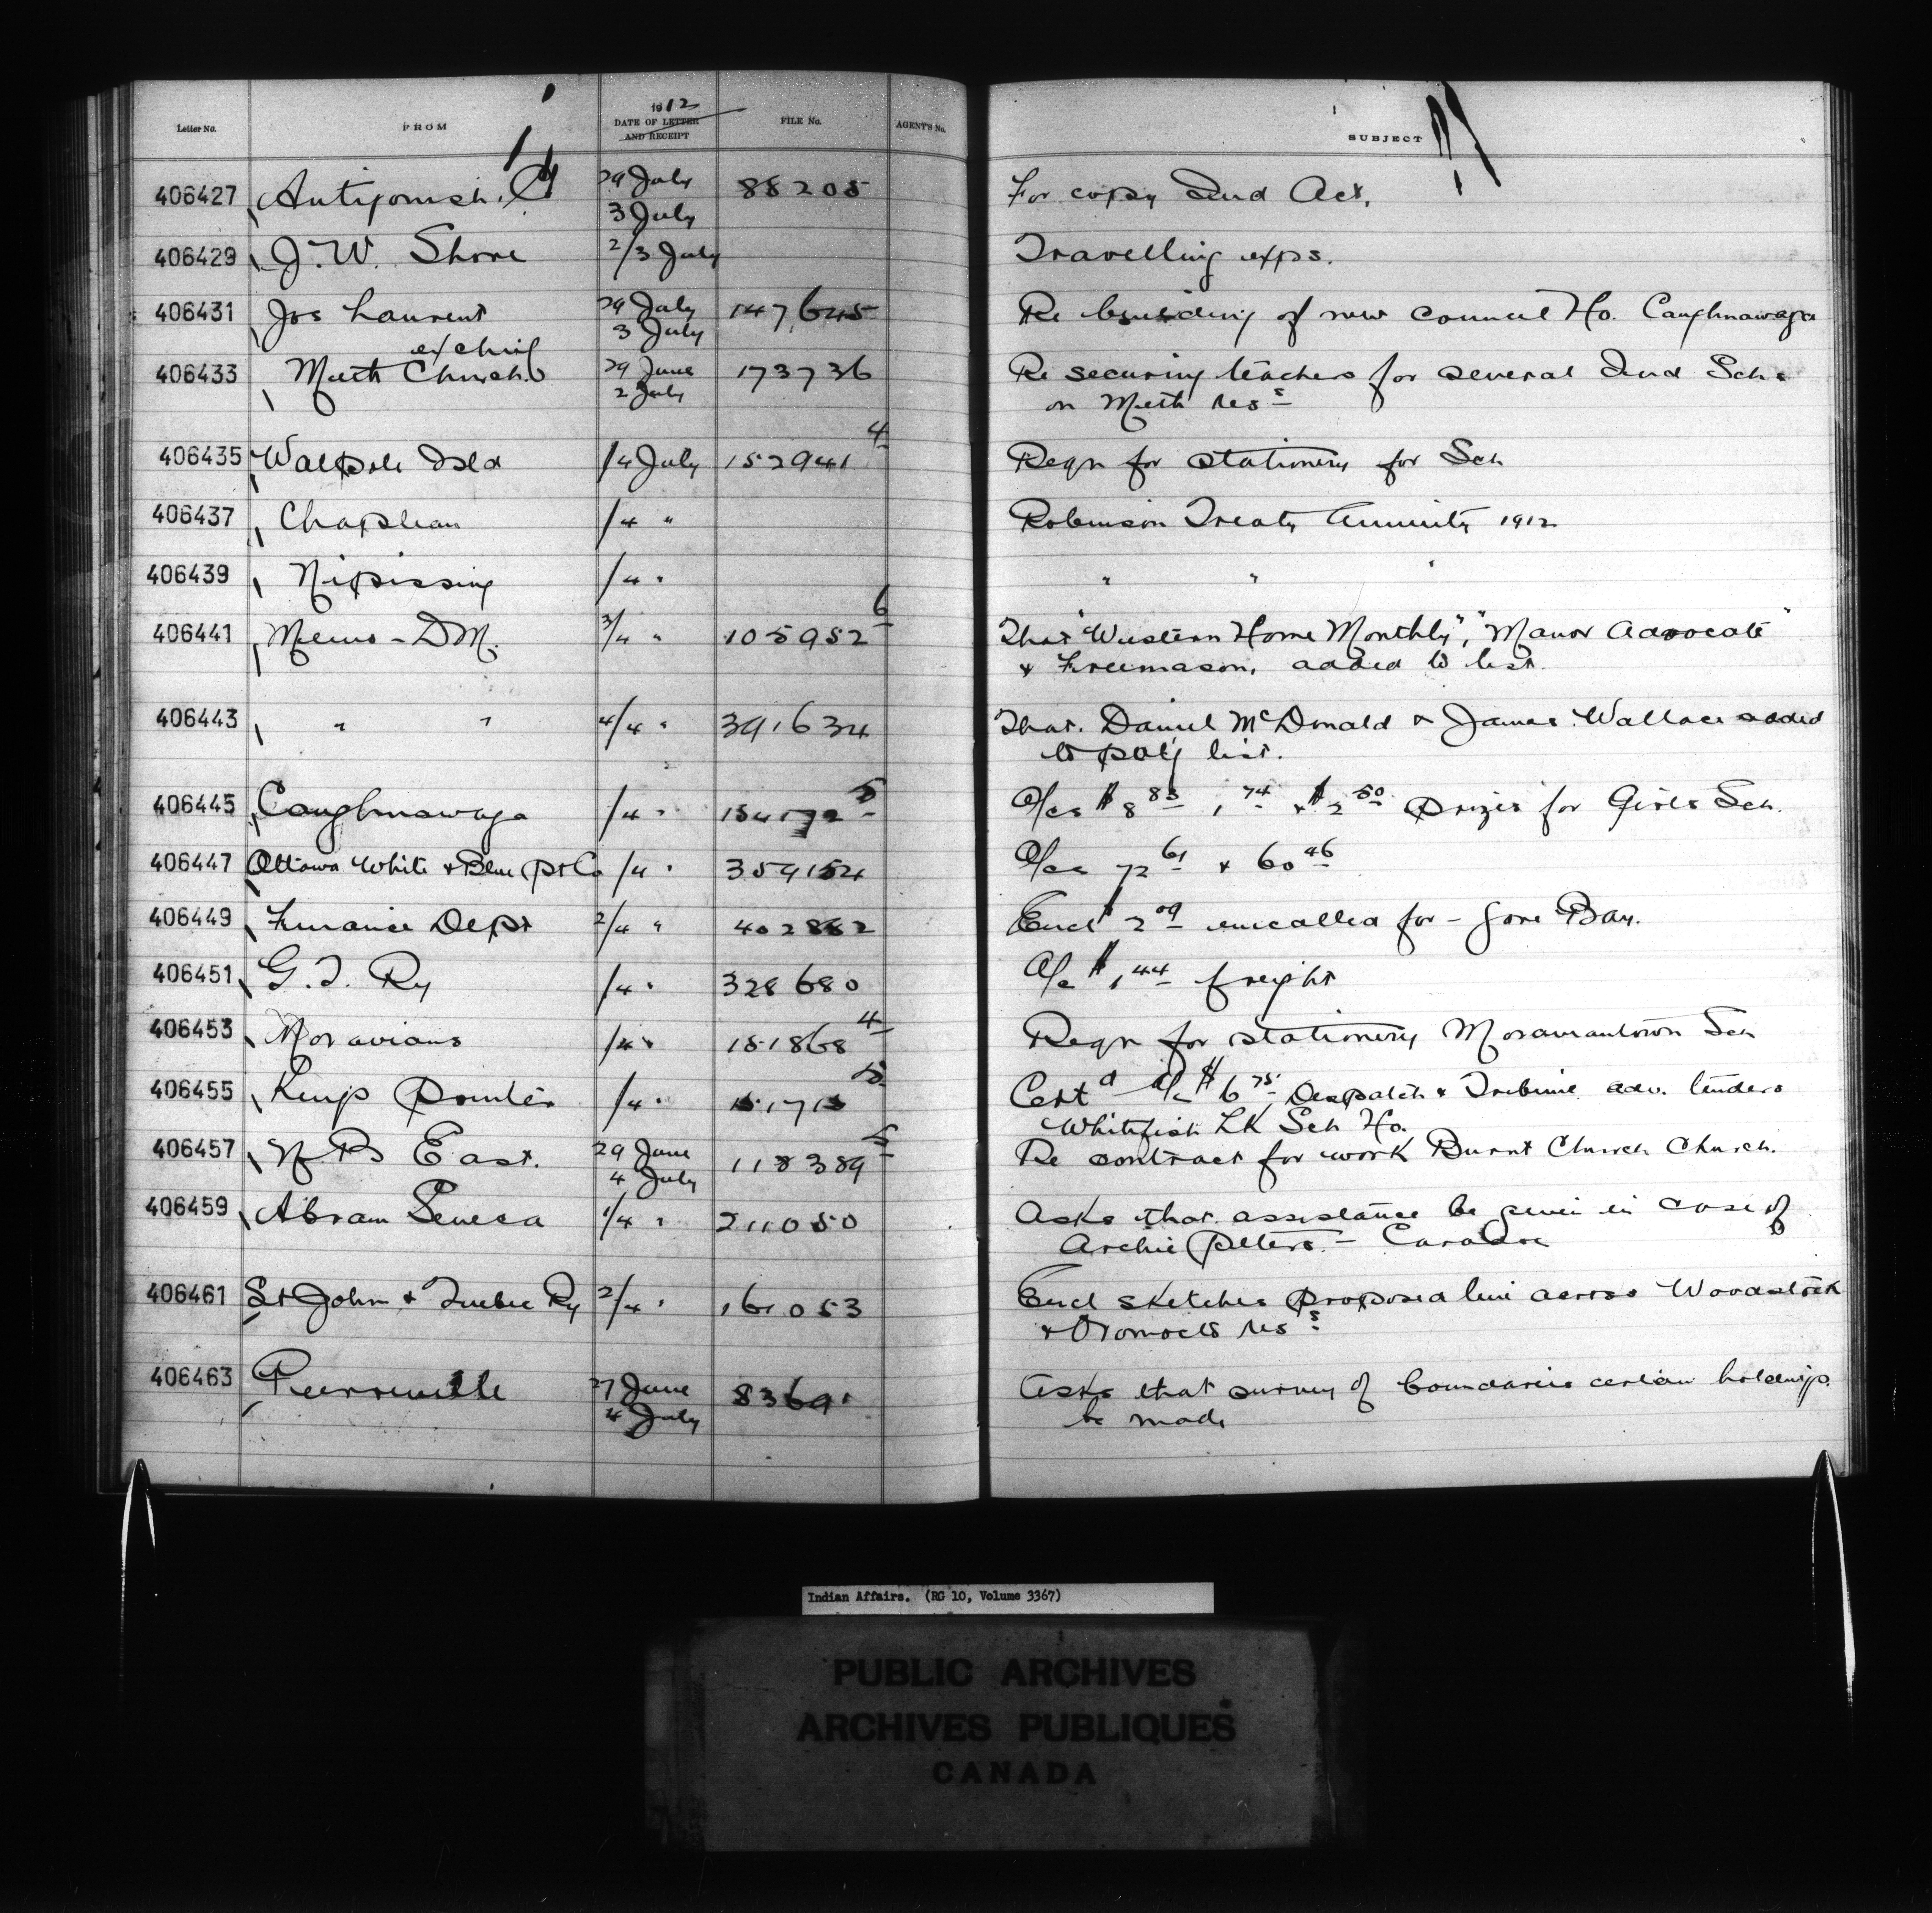 Letter No. FROM 1912 DATE OF LETTER AND RECEIPT FILE No. AGENT'S No. SUBJECT
406427 Antigonish. 29 July 3 July 88205 For copy Ind Act.
406429 J. W. Shore 2/3 July Travelling exps.
406431 Jos Laurent 29 July 3 July 147,645 Re building of new Council Ho. Caughnawaga
ex chief
406433 Meth Church. 29 June 2 July 173736 Re securing teachers for several Ind Schs
on Meth Ress
406435 Walpole Isld /4 July 152941 4 Reqn for stationery for Sch
406437 Chapleau /4 " Robinson Treaty Annuity 1912
406439 Nipissing /4 " " " "
406441 Memo - DM. 3/4 " 105952 6 That "Western Home Monthly", "Manor Advocate"
& Freemason, added to list.
406443 " " 4/4 " 391634 That. Daniel McDonald & James Wallace added
to pay list.
406445 Caughnawaga /4 " 154172 5 A/cs $8 83 1 74 & $2 50 prizes for Girls Sch.
406447 Ottawa White & Blue Pt Co /4 " 359154 A/cs 72 61 & 60 46
406449 Finance Dept 2/4 " 402882 Encl $2 09 uncalled for - Gore Bay.
406451 G. T. Ry /4 " 328680 A/c $1 44 freight
406453 Moravians /4 " 151868 4 Reqn for stationery Moraviantown Sch
406455 Kings Printer /4 " 151715 Cert d A/c $6 75 Despatch & Tribune adv. tenders
Whitefish LK Sch Ho.
406457 N B East. 29 June 4 July 118389 5 Re contract for work Burnt Church Church.
406459 Abram Seneca 1/4 " 211050 Asks that assistance be given in case of
Archie Peters. - Caradoc
406461 St John & Quebec Ry 2/4 " 161053 Encl sketches proposed line across Woodstock
& Oromocto Ress
406463 Pierreville 27 June 4 July 8369 Asks that survey of boundaries certain holdings.
be made
Indian Affairs. (RG 10, Volume 3367)
PUBLIC ARCHIVES
ARCHIVES PUBLIQUES
CANADA